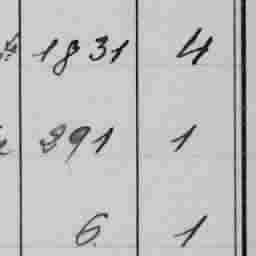 1831 4
291 1
6 1